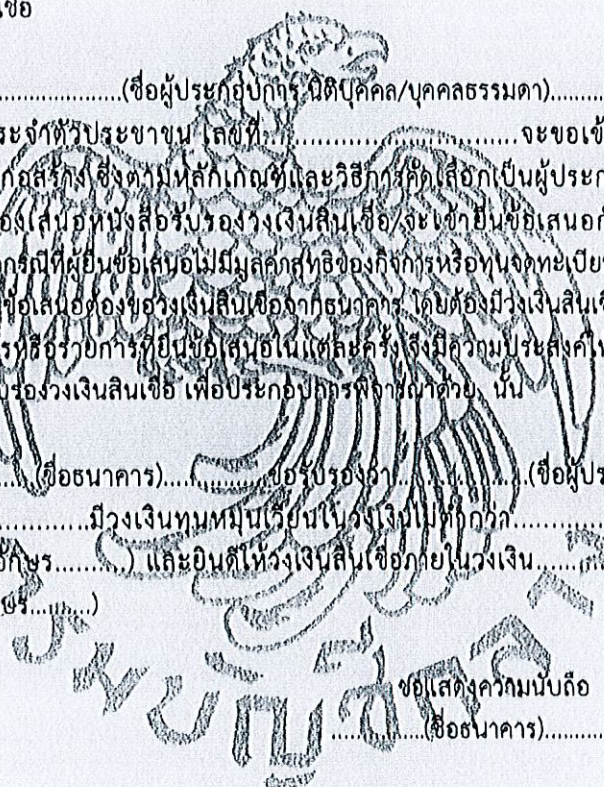 เชื่อ
....................(ชื่อผู้ประกอบการ นิติบุคคล/บุคคลธรรมดา)..........
ระจำตัวประชาชน เลขที่..............................จะขอเข้
ก่อสร้าง ซึ่งตามหลักเกณฑ์และวิธีการคัดเลือกเป็นผู้ประก
องเสนอหนังสือรับรองวงเงินสินเชื่อ/จะเข้ายื่นข้อเสนอกั
กรณีที่ผู้ยื่นข้อเสนอไม่มีมูลค่าสุทธิของกิจการหรือทุนจดทะเบีย
ข้อเสนอต้องขอวงเงินสินเชื่อจากธนาคาร โดยต้องมีวงเงินสินเชื
รหรือรายการที่ยื่นข้อเสนอในแต่ละครั้ง จึงมีความประสงค์ให
บรองวงเงินสินเชื่อ เพื่อประกอบการพิจารณาด้วย นั้น
......(ชื่อธนาคาร)....................ขอรับรองว่า....................(ชื่อผู้ประ
...............มีวงเงินทุนหมุนเวียนในวงเงินไม่ต่ำกว่า...............
อักษร..........) และยินดีให้วงเงินสินเชื่อภายในวงเงิน..........
ษร..........)
ขอแสดงความนับถือ
...............(ชื่อธนาคาร)..........
รมบัญชีกลา